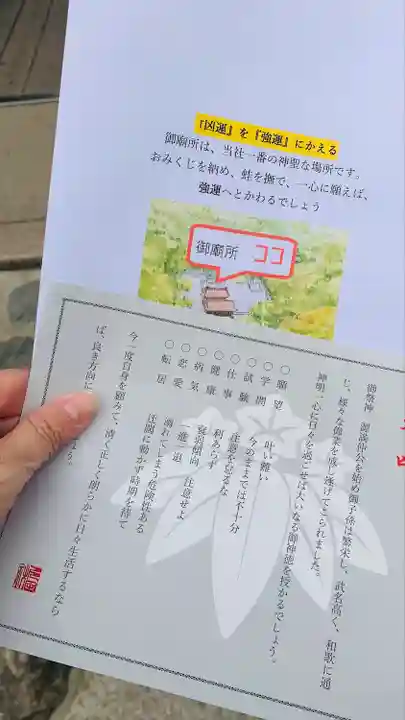 『凶運』を『強運』にかえる
御廟所は、当社一番の神聖な場所です。
おみくじを納め、蛙を撫で、一心に願えば、
強運へとかわるでしょう
御廟所 ココ
御祭神 源満仲公を始め御子孫は繁栄し、武名高く、和歌に通
じ、様々な偉業を成し遂げてこられました。
神明一心に日々を過ごせば大いなる御神徳を授かるでしょう。
〇願望 叶い難い
〇学問 今のままでは不十分
〇試験 注意を怠るな
〇仕事 利あらず
〇健康 衰弱傾向 注意せよ
〇病気 一進一退
〇恋愛 溺れてしまう危険性ある
〇転居 迂闊に動かず時期を待て
今一度自身を顧みて、清く正しく朗らかに日々生活するなら
ば、良き方向に